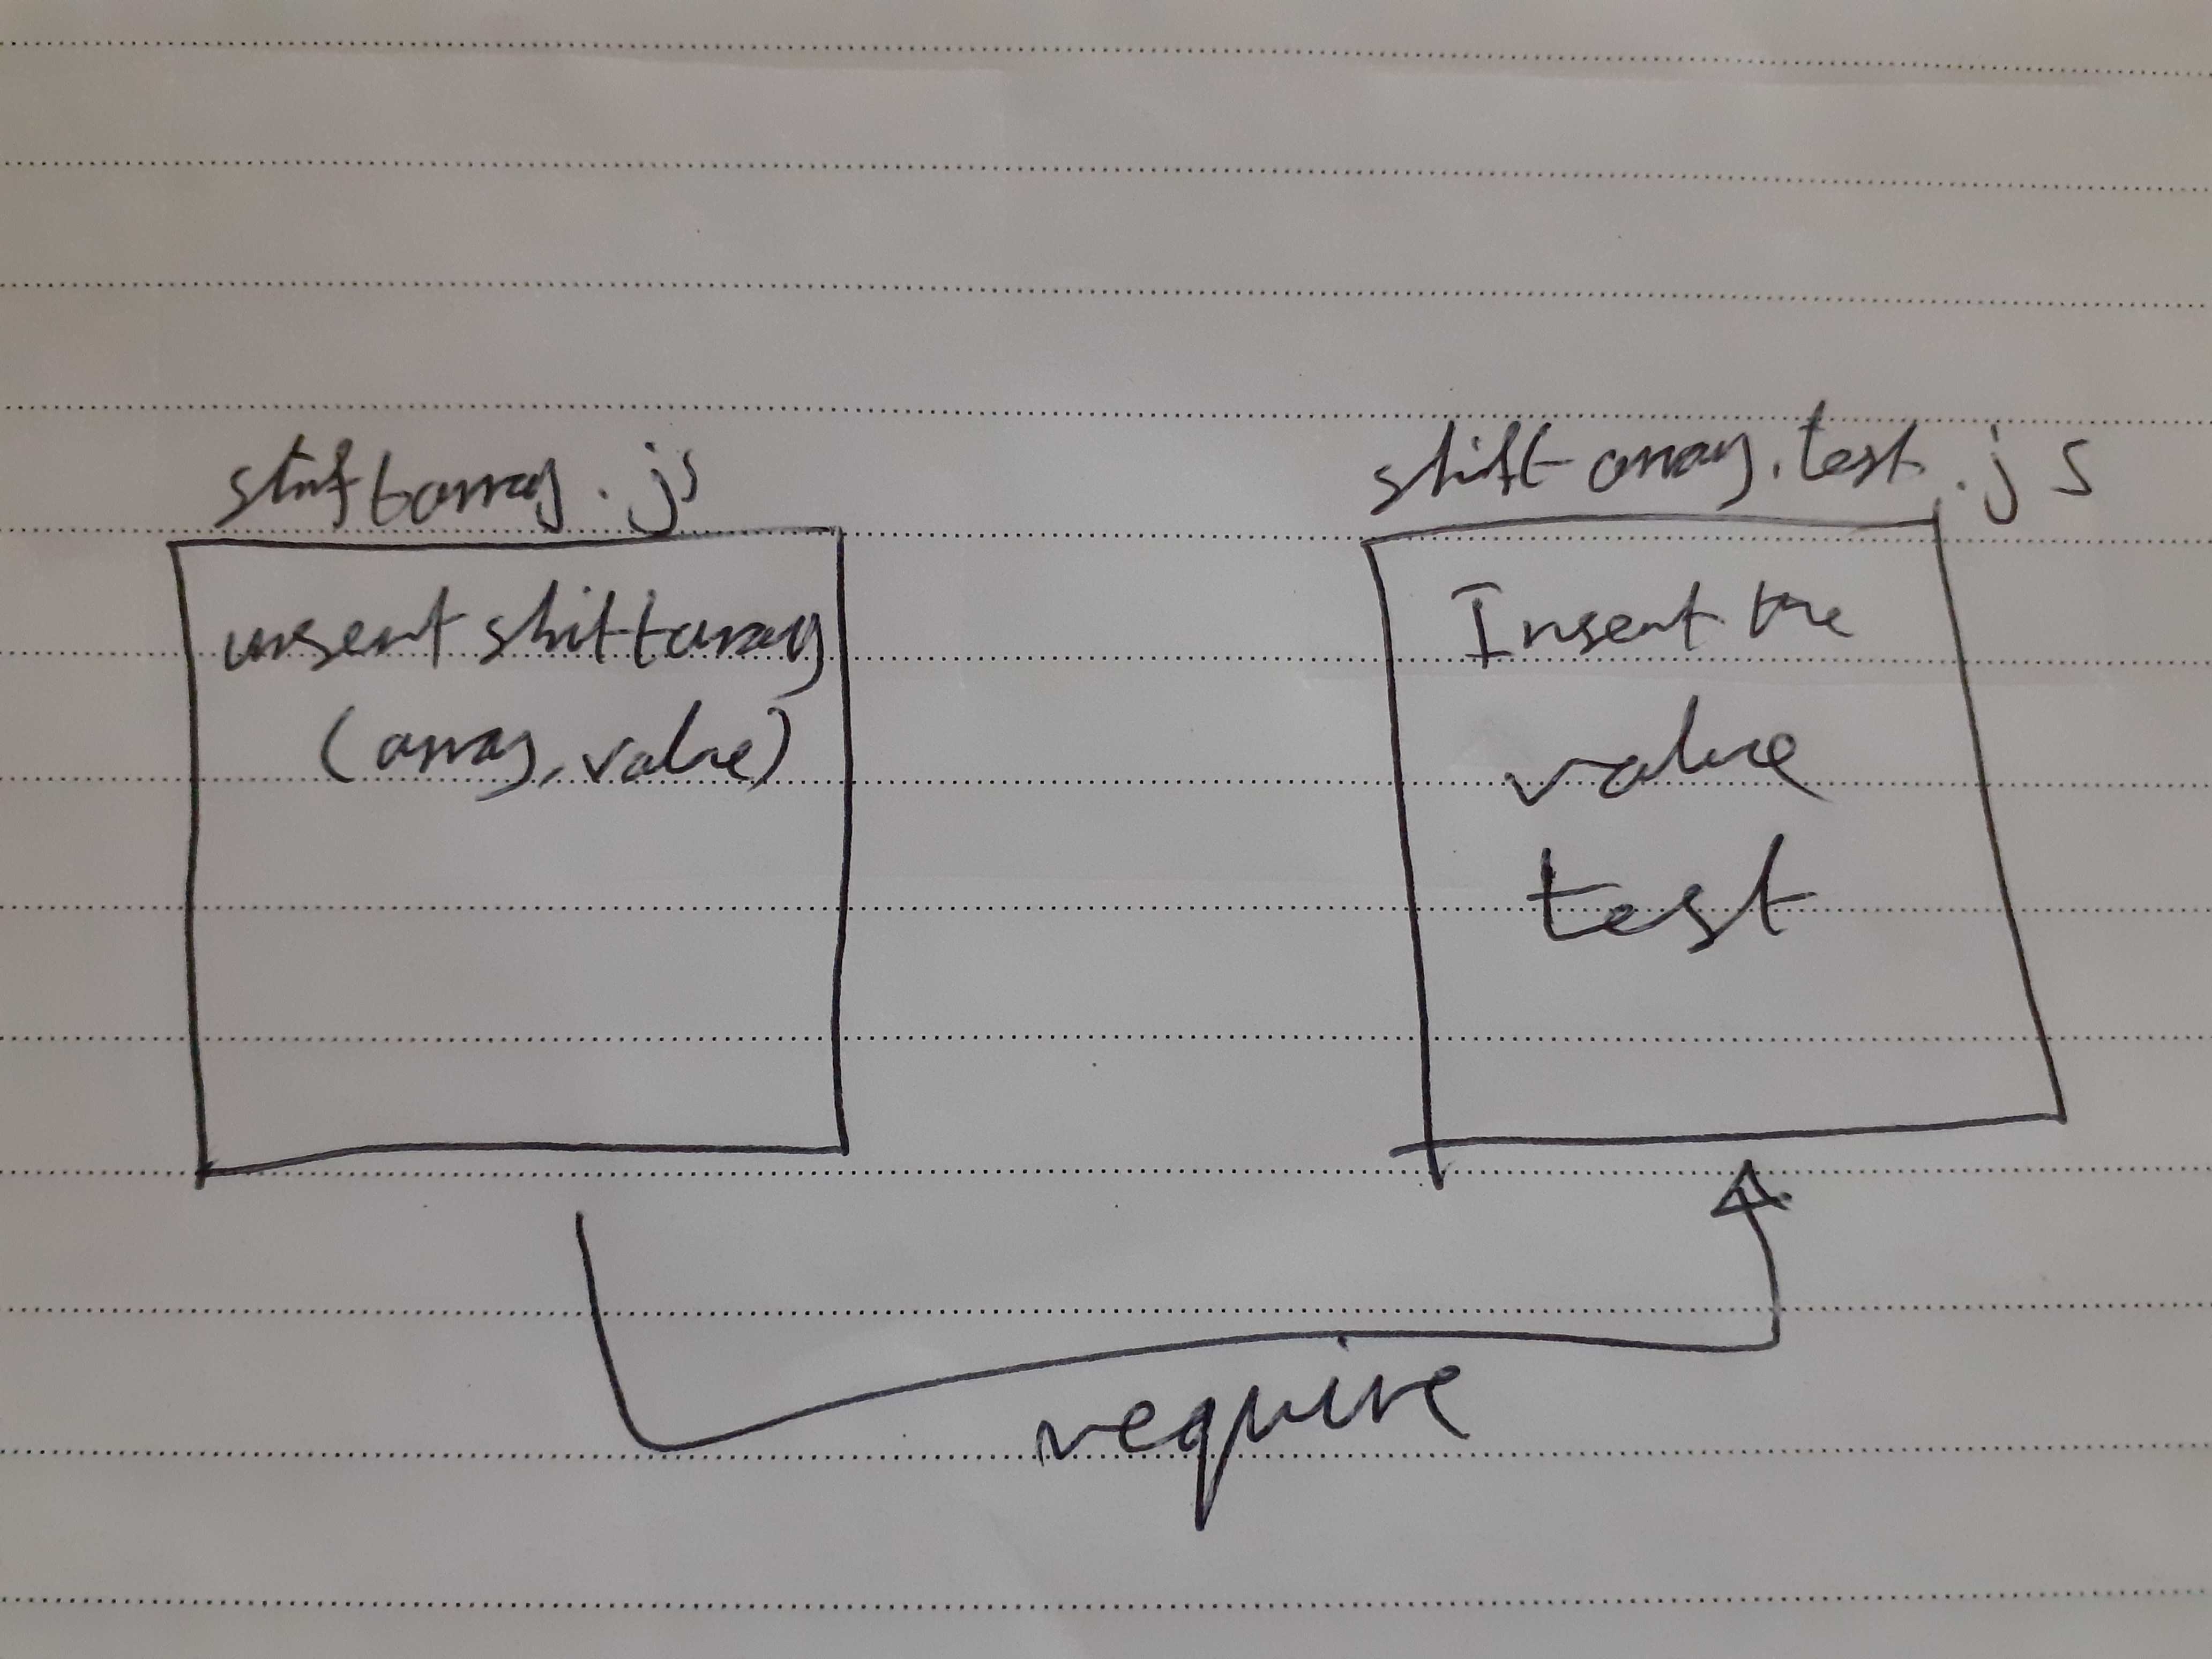 shiftarray.js
insert shiftarray
(array, value)
shift array.test.js
Insert the
value
test
require